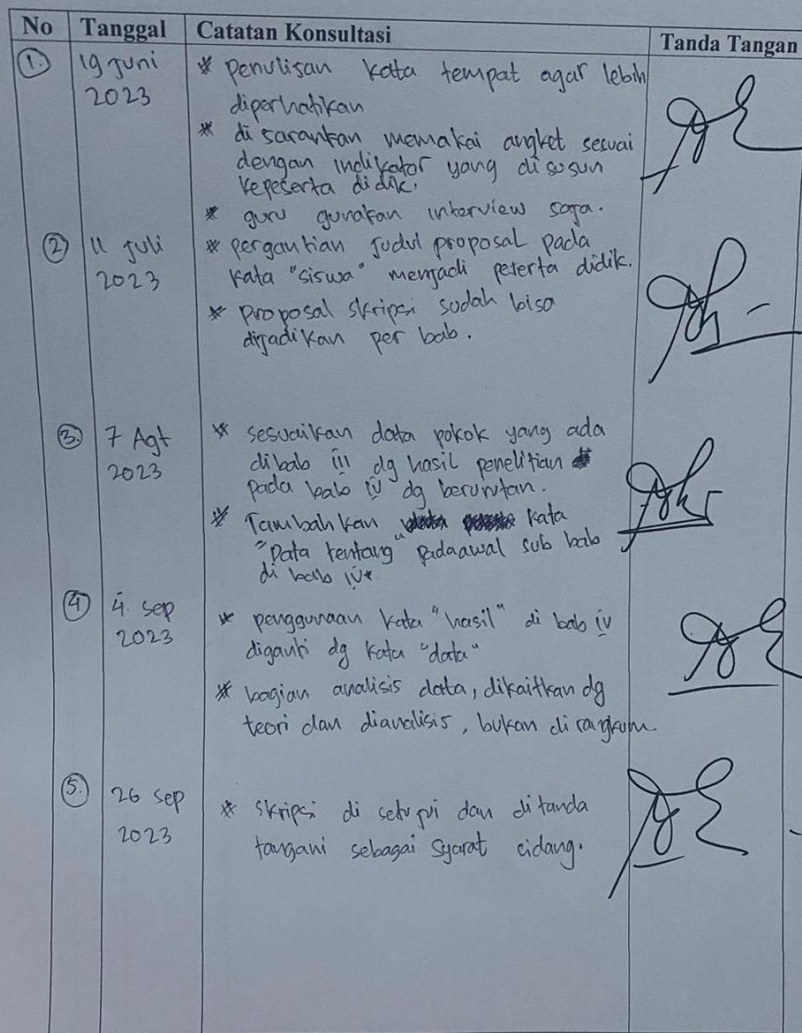 No Tanggal Catatan Konsultasi Tanda Tangan
1. 19 Juni * penulisan kata tempat agar lebih
2023 diperhatikan
* di sarankan memakai angket sesuai
dengan indikator yang di susun
kepeserta didik.
* guru gunakan interview saja.
2 11 Juli * pergantian judul proposal pada
2023 kata "siswa" menjadi peserta didik.
* proposal skripsi sudah bisa
dijadikan per bab.
3. 7 Agt * sesuaikan data pokok yang ada
2023 dibab iii dg hasil penelitian
pada bab iv dg berurutan.
* Tambahkan kata
"Data tentang" padaawal sub bab
di bab iv*
4 4. sep * penggunaan kata "hasil" di bab iv
2023 diganti dg kata "data"
* bagian analisis data, dikaitkan dg
teori dan dianalisis, bukan di rangkum.
5. 26 sep * skripsi di setujui dan di tanda
2023 tangani sebagai syarat cidang.